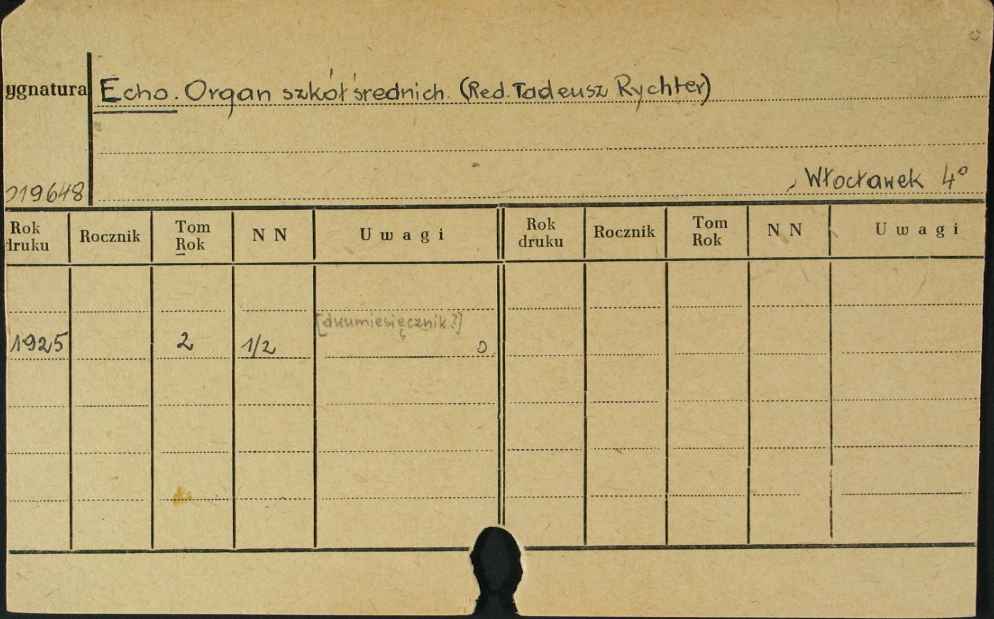 ygnatura Echo. Organ szkół średnich (Red. Tadeusz Rychter)
019648 , Włocławek 4°
Rok druku Rocznik Tom Rok N N Uwagi Rok druku Rocznik Tom Rok N N Uwagi
[dwumiesięcznik?]
1925 2 1/2